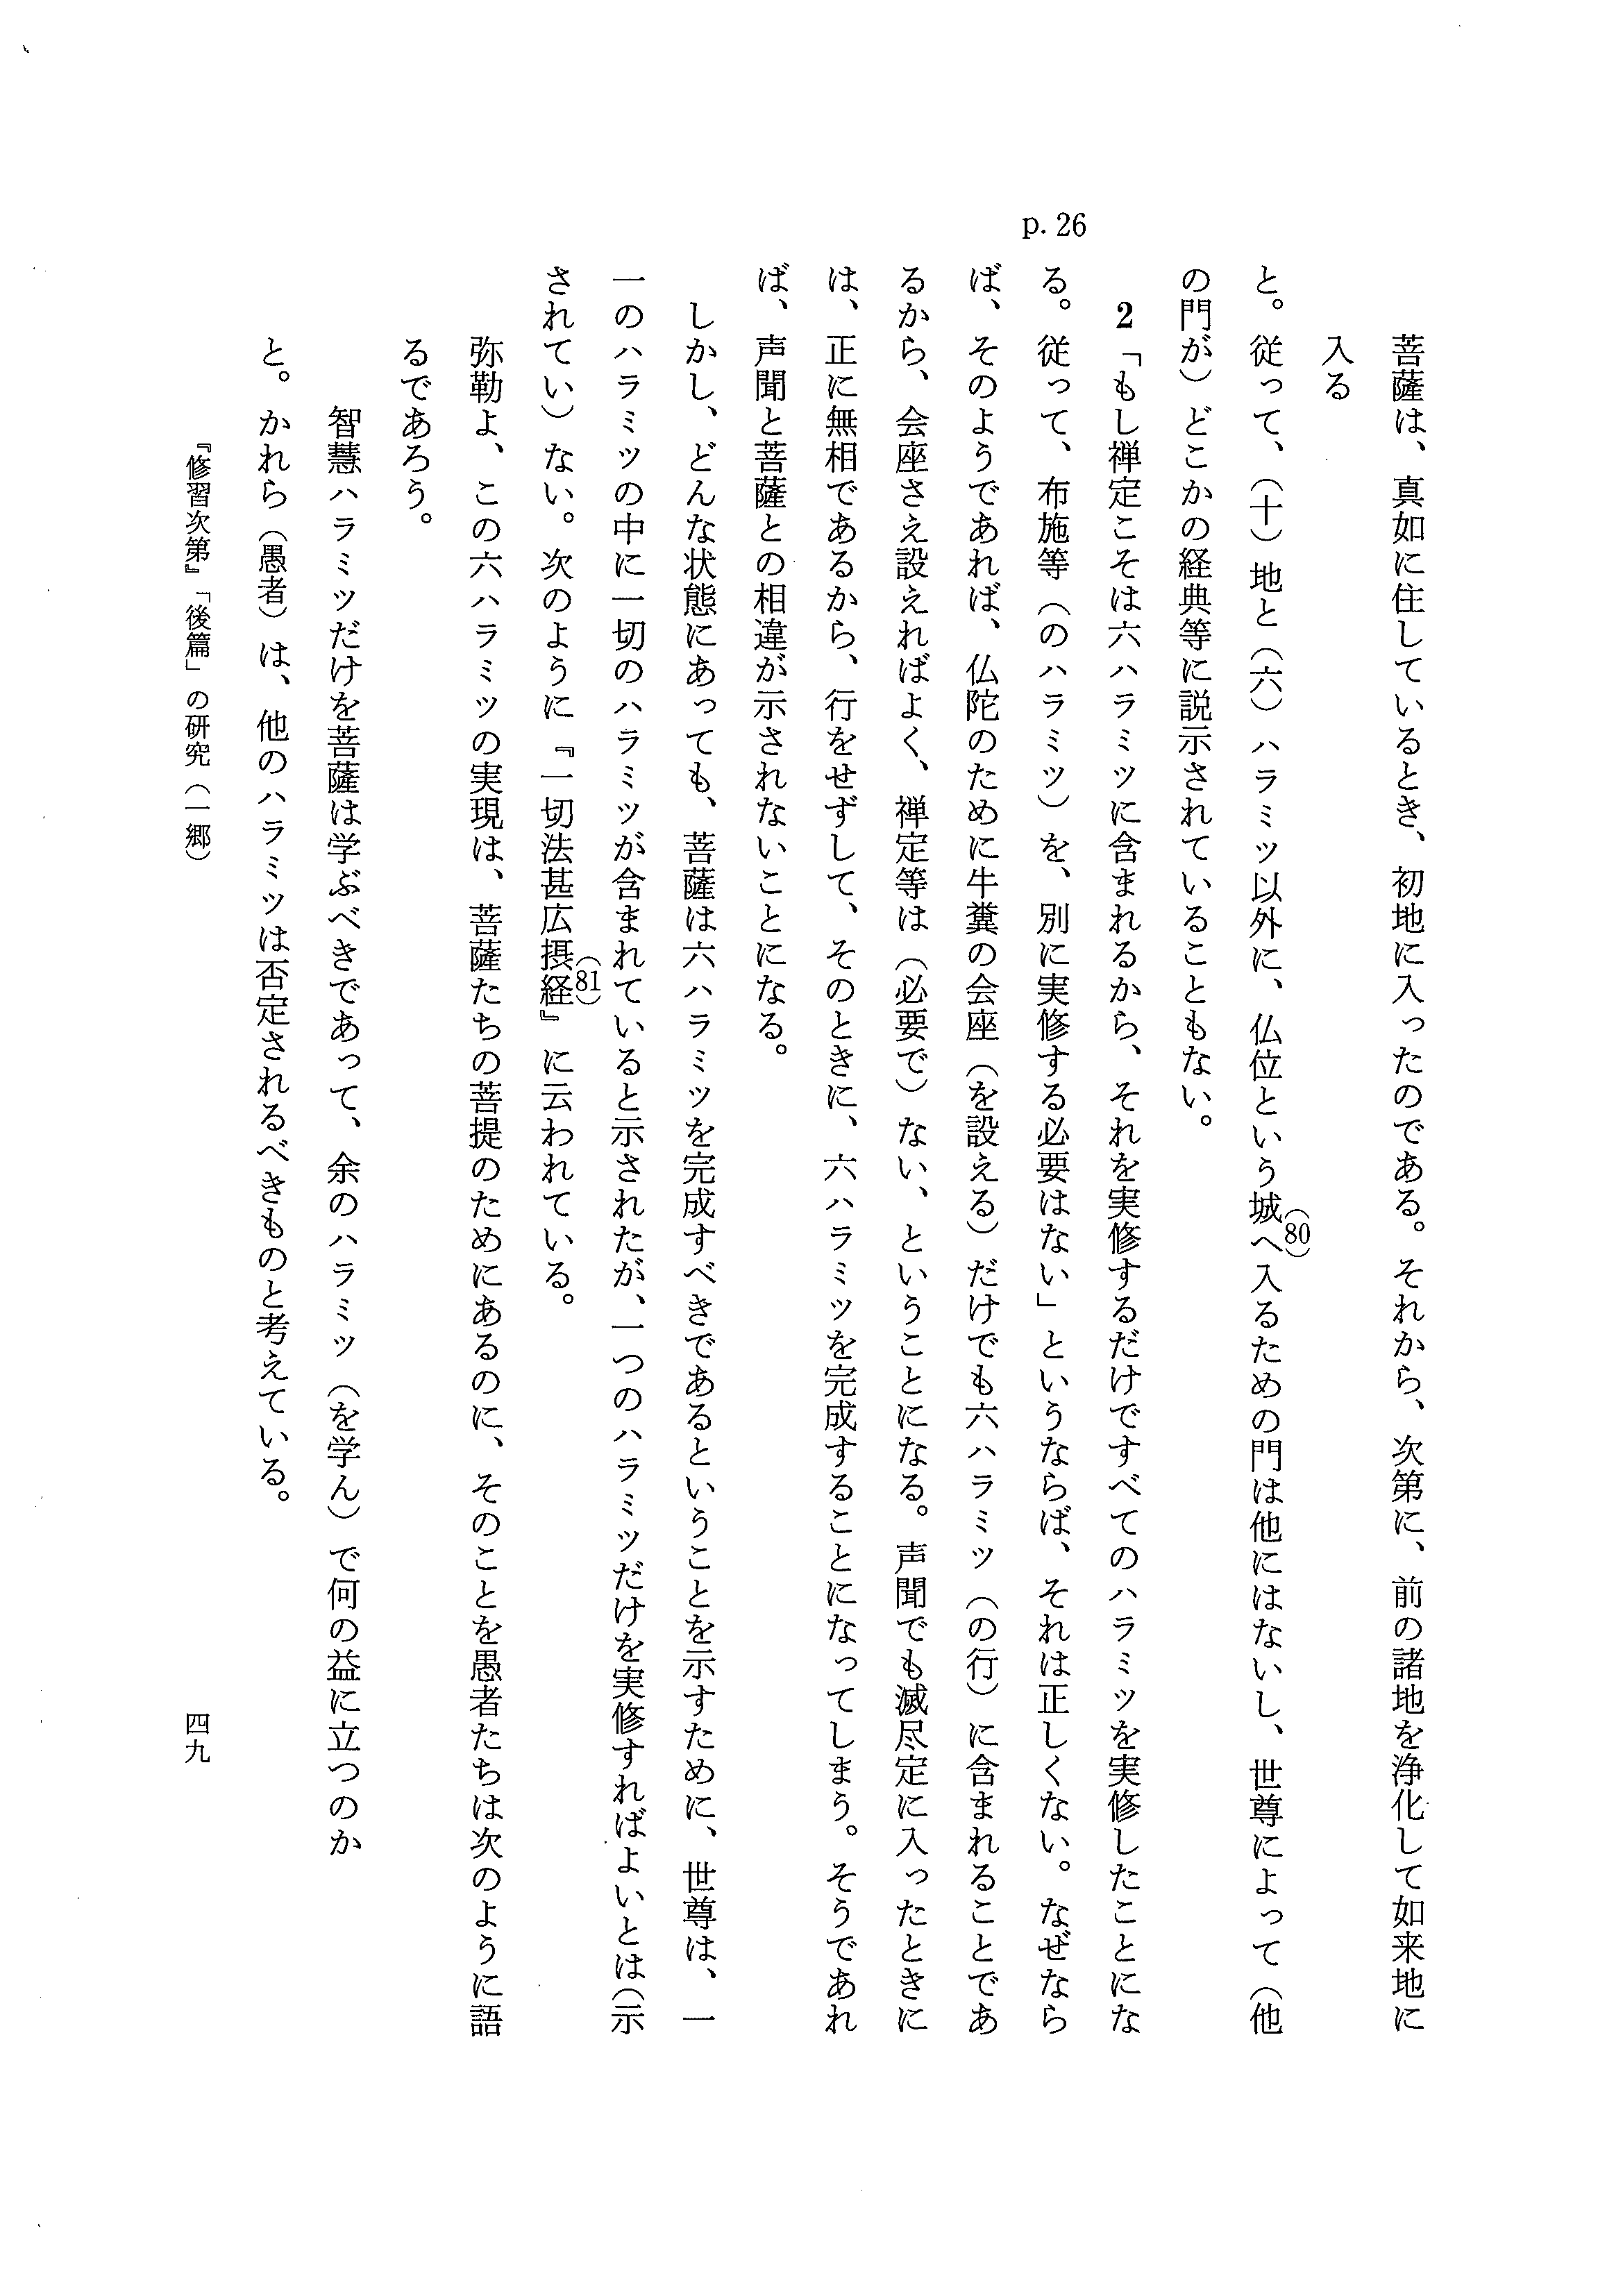 菩薩は、真如に住しているとき、初地に入ったのである。それから、次第に、前の諸地を浄化して如来地に
入る
と。従って、（十）地と（六）ハラミツ以外に、仏位という城へ(80)入るための門は他にはないし、世尊によって（他
の門が）どこかの経典等に説示されていることもない。
2「もし禅定こそは六ハラミツに含まれるから、それを実修するだけですべてのハラミツを実修したことにな
p. 26
る。従って、布施等（のハラミツ）を、別に実修する必要はない」というならば、それは正しくない。なぜなら
ば、そのようであれば、仏陀のために牛糞の会座（を設える）だけでも六ハラミツ（の行）に含まれることであ
るから、会座さえ設えればよく、禅定等は（必要で）ない、ということになる。声聞でも滅尽定に入ったときに
は、正に無相であるから、行をせずして、そのときに、六ハラミツを完成することになってしまう。そうであれ
ば、声聞と菩薩との相違が示されないことになる。
しかし、どんな状態にあっても、菩薩は六ハラミツを完成すべきであるということを示すために、世尊は、一
一のハラミツの中に一切のハラミツが含まれていると示されたが、一つのハラミツだけを実修すればよいとは（示
されてい）ない。次のように『一切法甚広摂経(81)』に云われている。
弥勒よ、この六ハラミツの実現は、菩薩たちの菩提のためにあるのに、そのことを愚者たちは次のように語
るであろう。
智慧ハラミツだけを菩薩は学ぶべきであって、余のハラミツ（を学ん）で何の益に立つのか
と。かれら（愚者）は、他のハラミツは否定されるべきものと考えている。
『修習次第』「後篇」の研究（一郷）
四九